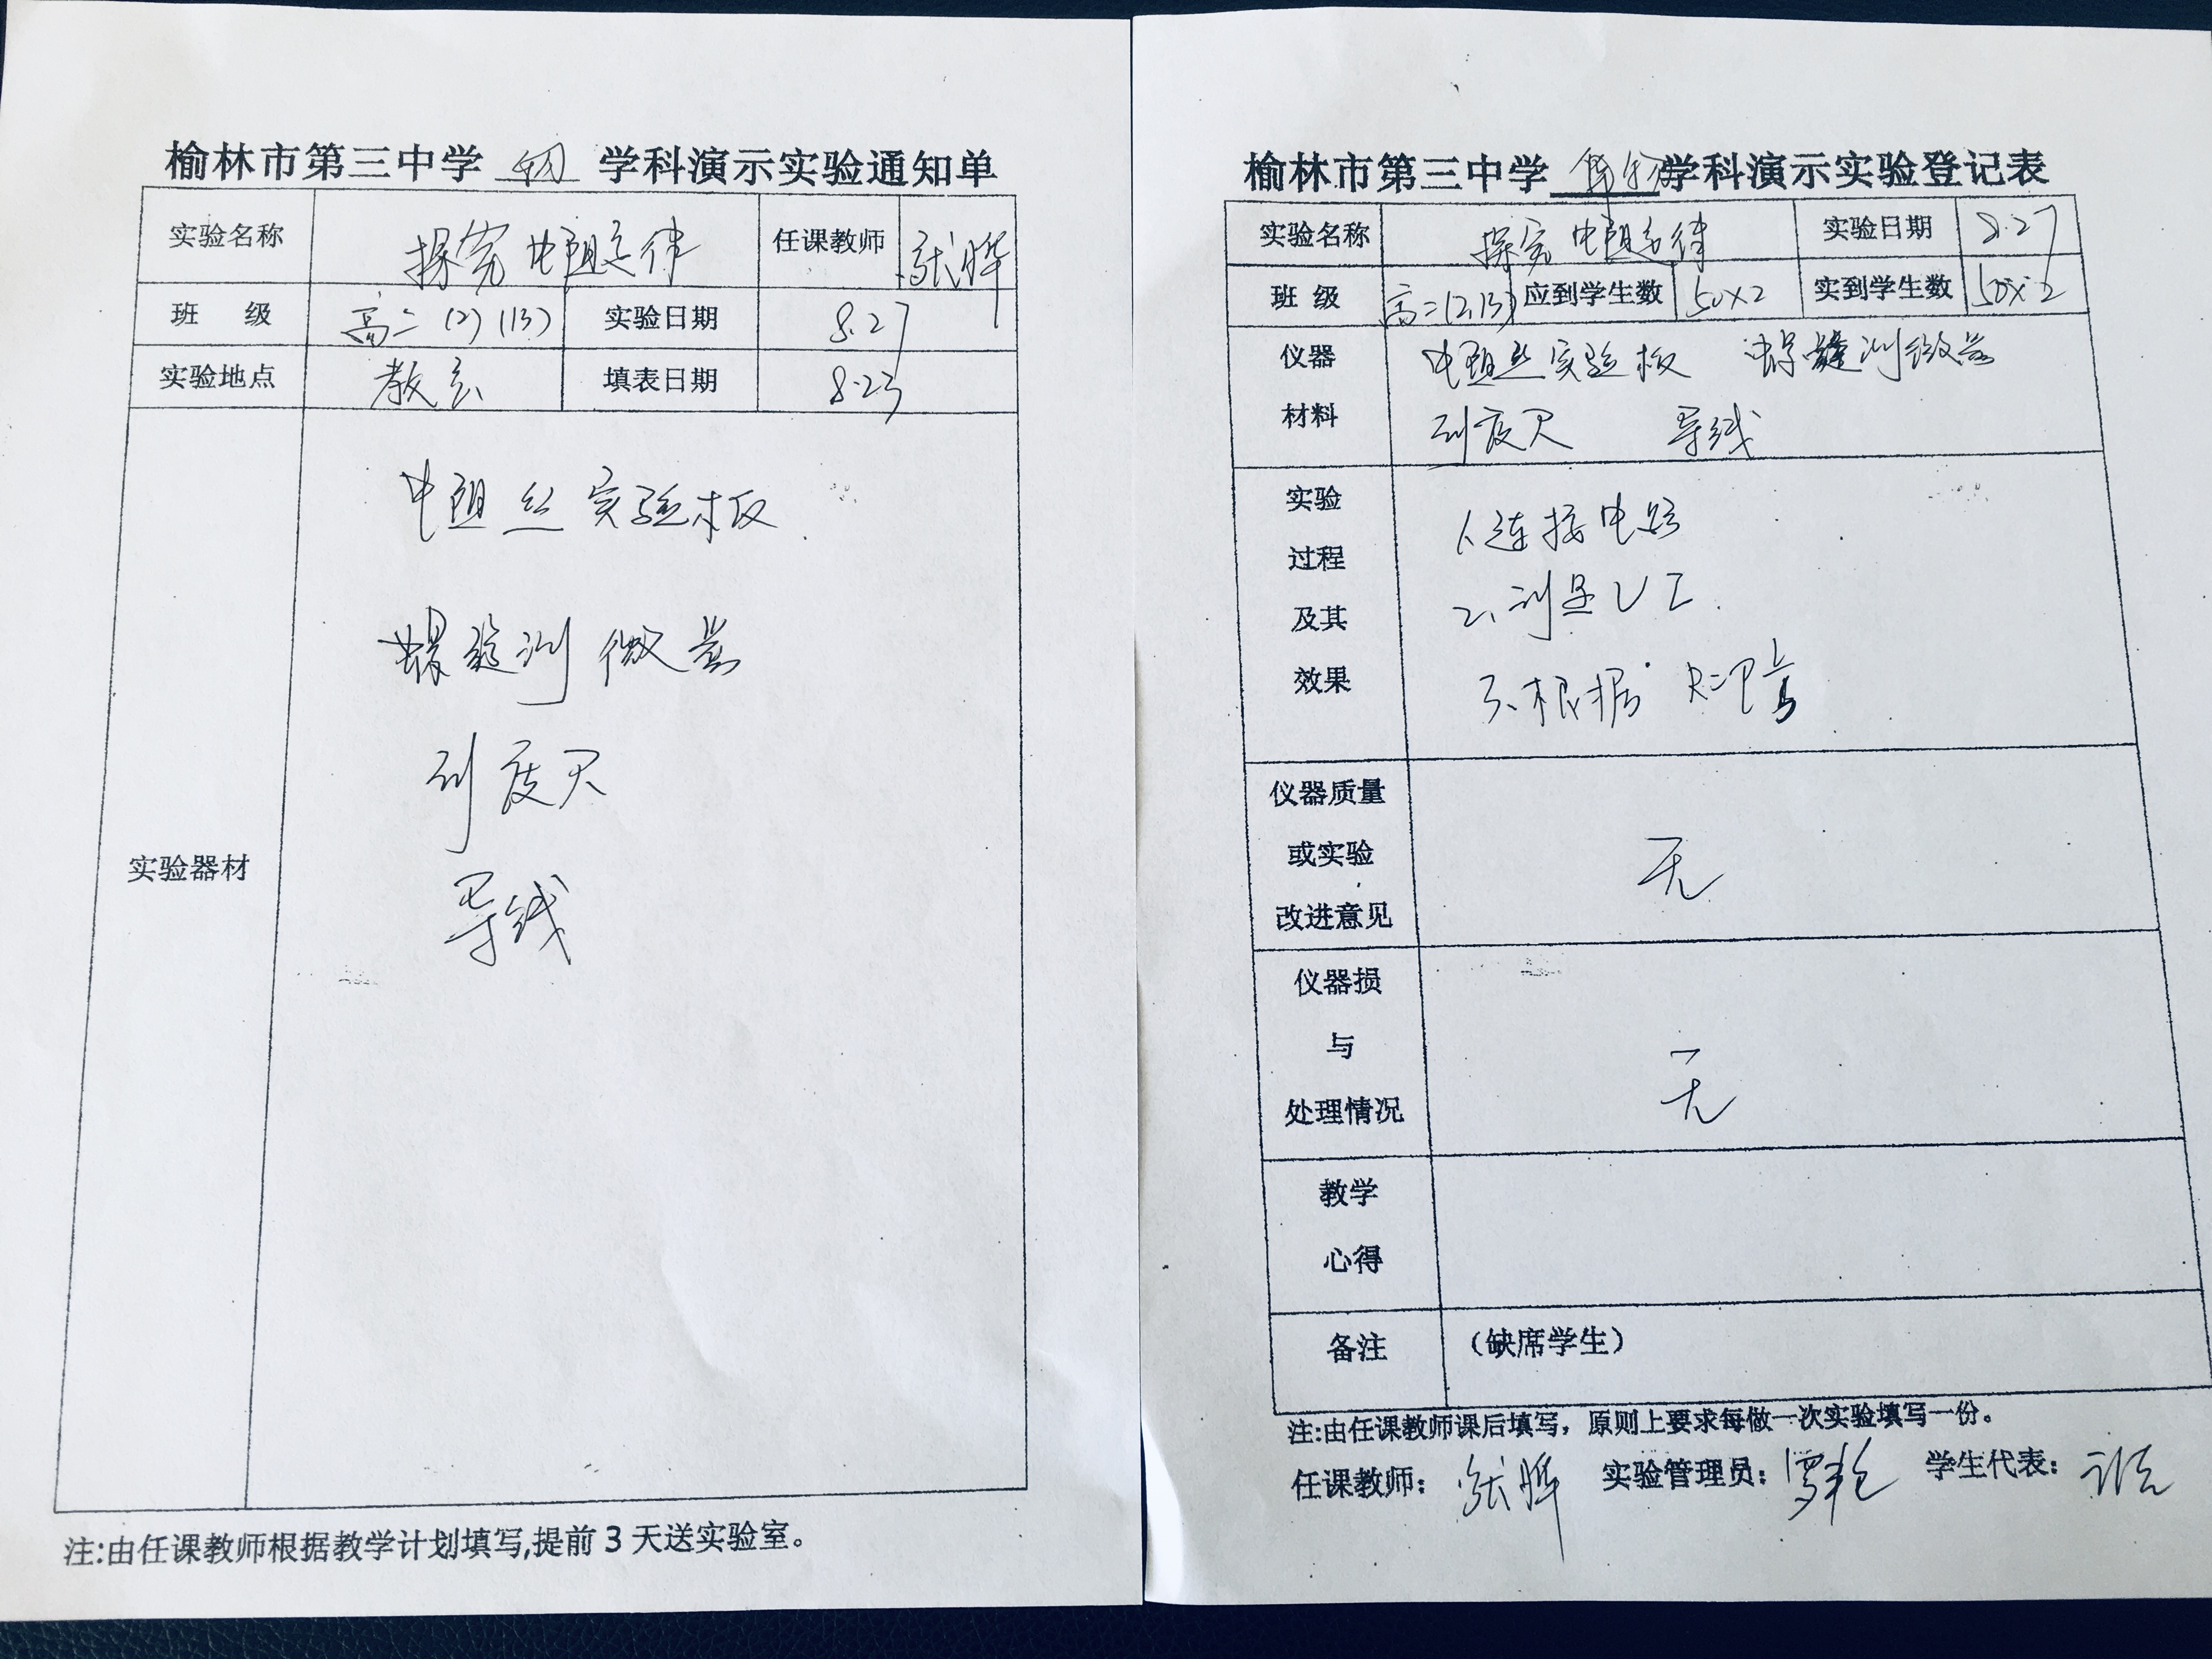 榆林市第三中学 物理 学科演示实验通知单
实验名称 探究电阻定律 任课教师 张晔
班 级 高二(2)(13) 实验日期 8.27
实验地点 教室 填表日期 8.23
实验器材
电阻丝实验板
螺旋测微器
刻度尺
导线
注:由任课教师根据教学计划填写,提前3天送实验室。
榆林市第三中学 学科演示实验登记表
实验名称 探究电阻定律 实验日期 8.27
班 级 高二(2,13) 应到学生数 50×2 实到学生数 50×2
仪器材料 电阻丝实验板 螺旋测微器
刻度尺 导线
实验过程及其效果
1、连接电路
2、测量U I.
3、根据
仪器质量或实验改进意见 无
仪器损与处理情况 无
教学心得
备注 (缺席学生)
注:由任课教师课后填写，原则上要求每做一次实验填写一份。
任课教师: 张晔 实验管理员: 学生代表: